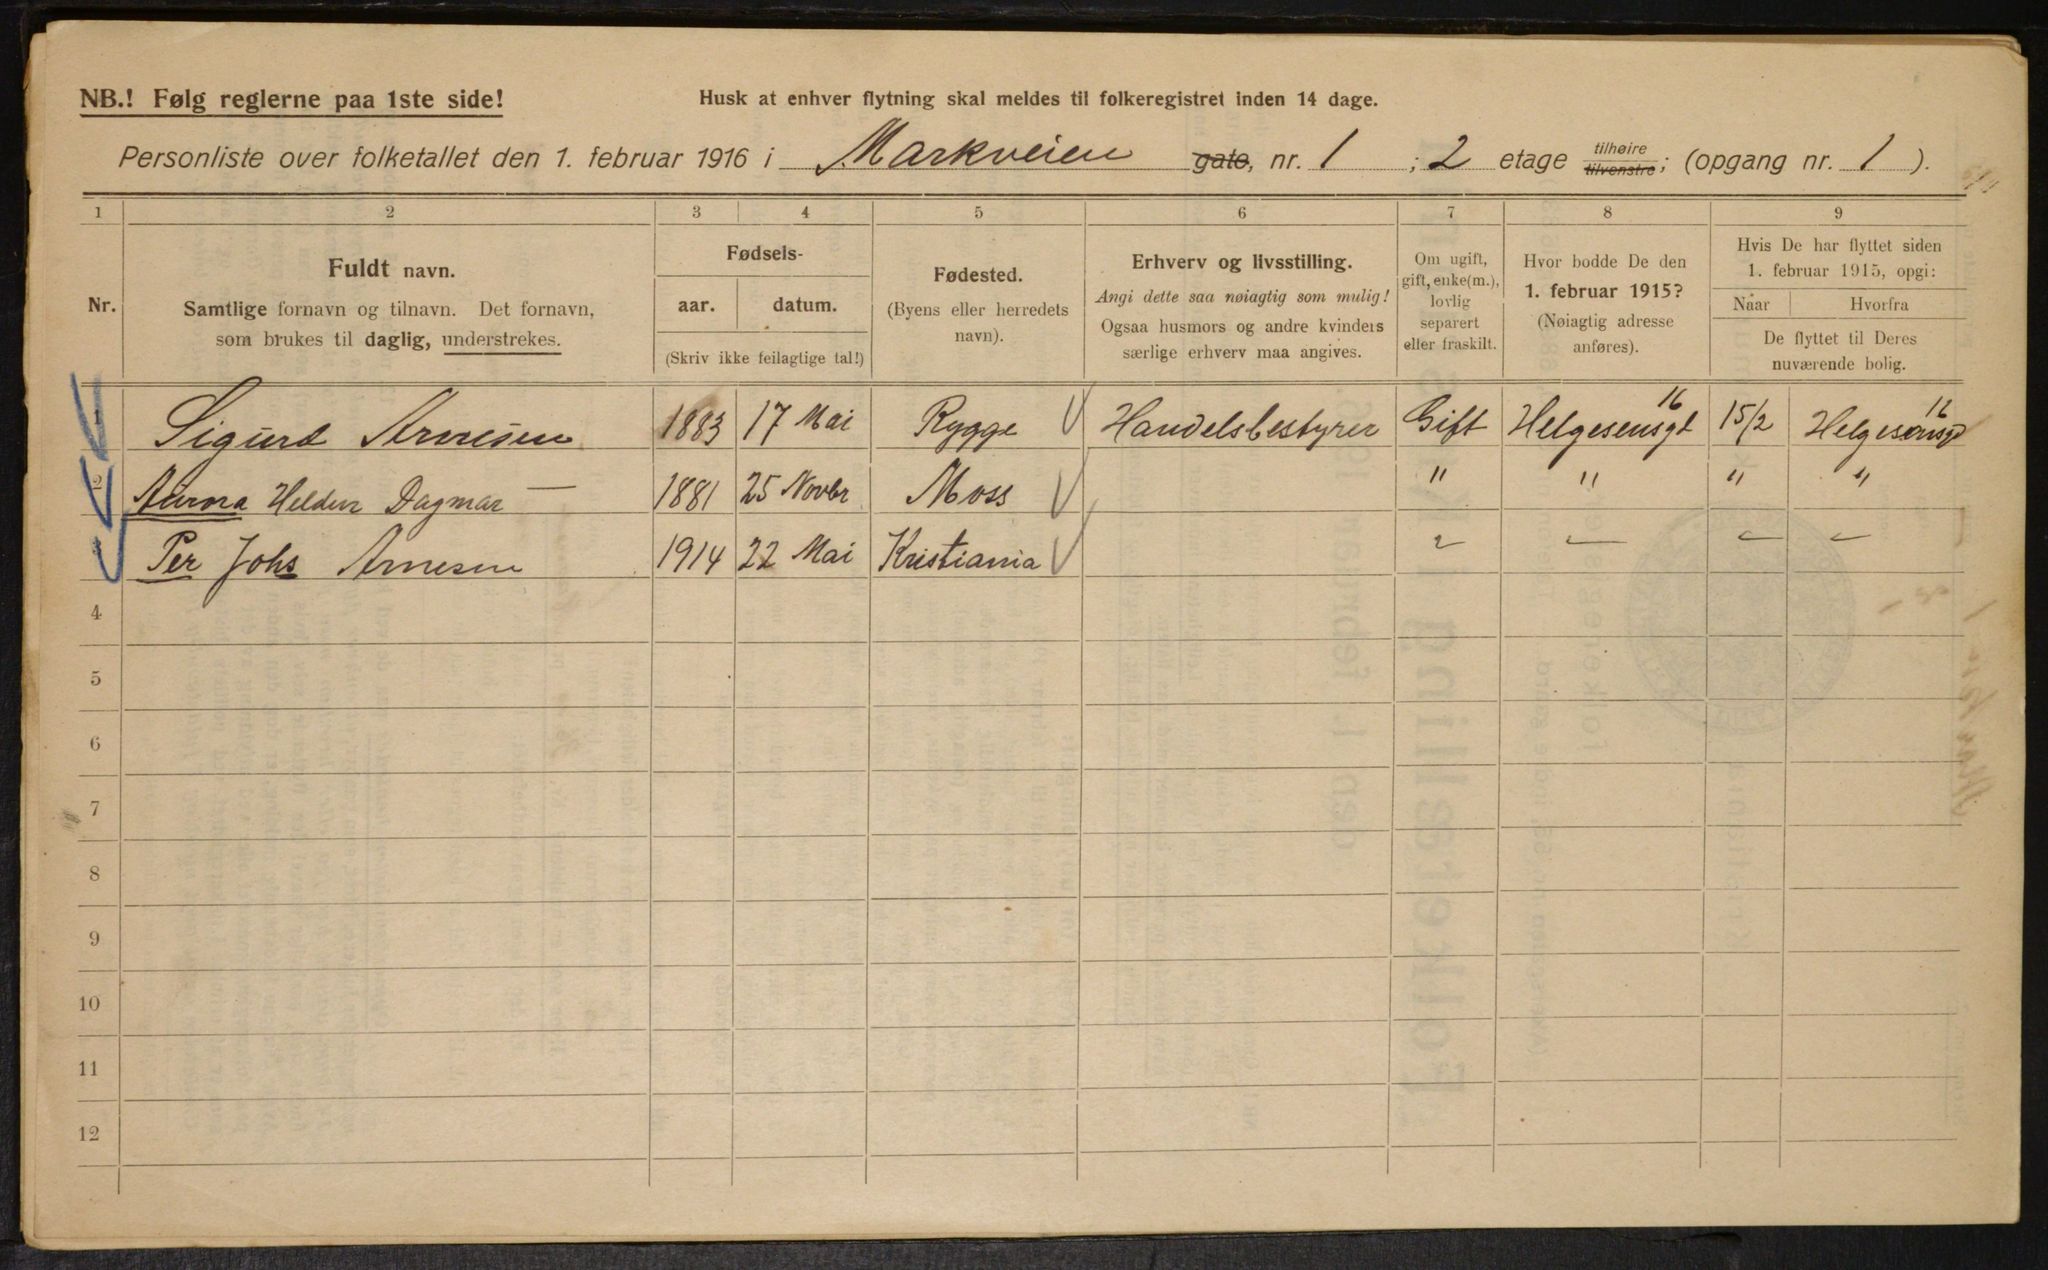 NB.! Følg reglerne paa 1ste side!
Husk at enhver flytning skal meldes til folkeregistret inden 14 dage.
Personliste over folketallet den 1. februar 1916 i Markveien gate, nr. 1 ; 2 etage tilhøire tilvenstre; (opgang nr. 1 ).
1 2 3 4 5 6 7 8 9
Nr.
Fuldt navn.
Samtlige fornavn og tilnavn. Det fornavn,
som brukes til daglig, understrekes.
Fødsels-
aar. datum.
(Skriv ikke feilagtige tal!)
Fødested.
(Byens eller herredets
navn).
Erhverv og livsstilling.
Angi dette saa nøiagtig som mulig!
Ogsaa husmors og andre kvinders
særlige erhverv maa angives.
Om ugift,
gift, enke(m.),
lovlig
separert
eller fraskilt.
Hvor bodde De den
1. februar 1915?
(Nøiagtig adresse
anføres).
Hvis De har flyttet siden
1. februar 1915, opgi:
Naar Hvorfra
De flyttet til Deres
nuværende bolig.
Sigurd Arnesen 1883 17 Mai Rygge Handelsbestyrer Gift Helgesensgt 16 15/2 Helgesensgt 16
2 Aurora Dagmar — 1881 25 Novbr Moss " " " "
Per Johs Arnesen 1914 22 Mai Kristiania " — — —
4
5
6
7
8
9
10
11
12